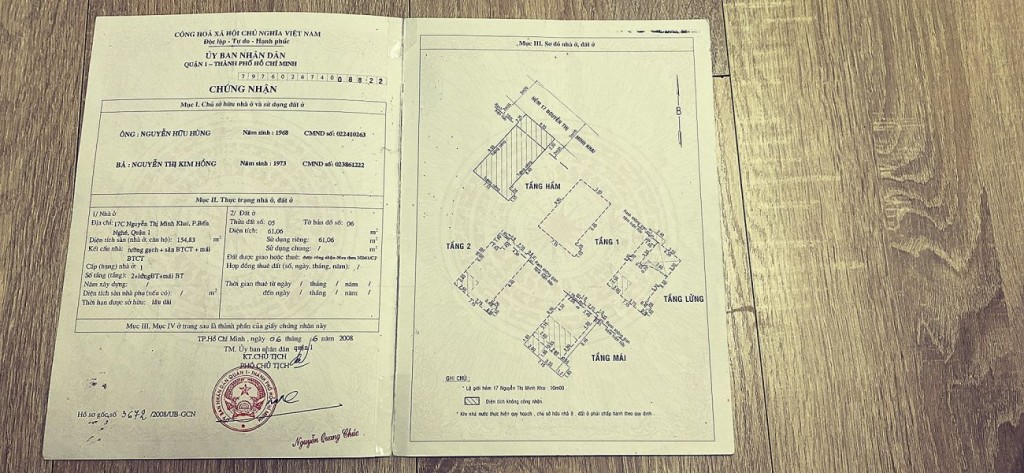 CỘNG HOÀ XÃ HỘI CHỦ NGHĨA VIỆT NAM
Độc lập - Tự do - Hạnh phúc
ỦY BAN NHÂN DÂN
QUẬN 1 - THÀNH PHỐ HỒ CHÍ MINH
CHỨNG NHẬN
Mục I. Chủ sở hữu nhà ở và sử dụng đất ở
ÔNG : NGUYỄN HỮU HÙNG Năm sinh : 1968 CMND số: 022410263
BÀ : NGUYỄN THỊ KIM HỒNG Năm sinh : 1973 CMND số: 023861222
Mục II. Thực trạng nhà ở, đất ở
1/ Nhà ở
Địa chỉ: 17C Nguyễn Thị Minh Khai, P.Bến
Nghé, Quận 1
Diện tích sàn (nhà ở, căn hộ): 154,83 m²
Kết cấu nhà: tường gạch + sàn BTCT + mái
BTCT
Cấp (hạng) nhà ở: 1
Số tầng (tầng): 2+lửngBT+mái BT
Năm xây dựng: /
Diện tích sàn nhà phụ (nếu có): / m²
Thời hạn được sở hữu: lâu dài
2/ Đất ở
Thửa đất số: 05 Tờ bản đồ số: 06
Diện tích: 61,06 m²
Sử dụng riêng: 61,06 m²
Sử dụng chung: / m²
Đất được giao hoặc thuê:
Hợp đồng thuê đất (số, ngày, tháng, năm): /
Thời gian thuê từ ngày / tháng / năm /
đến ngày / tháng / năm /
Mục III, Mục IV ở trang sau là thành phần của giấy chứng nhận này
TP.Hồ Chí Minh, ngày 06 tháng 6 năm 2008
TM. Ủy ban nhân dân quận 1
KT.CHỦ TỊCH
PHÓ CHỦ TỊCH
Hồ sơ gốc số 3672 /2008/UB-GCN
Nguyễn Quang Chúc
Mục III. Sơ đồ nhà ở, đất ở
B
HẺM 17 NGUYỄN THỊ MINH KHAI
TẦNG HẦM
TẦNG 1
TẦNG 2
TẦNG LỬNG
TẦNG MÁI
GHI CHÚ :
* Lộ giới hẻm 17 Nguyễn Thị Minh Khai : 10m00
Diện tích không công nhận.
* Khi nhà nước thực hiện quy hoạch , chủ sở hữu nhà ở , đất ở phải chấp hành theo quy định .